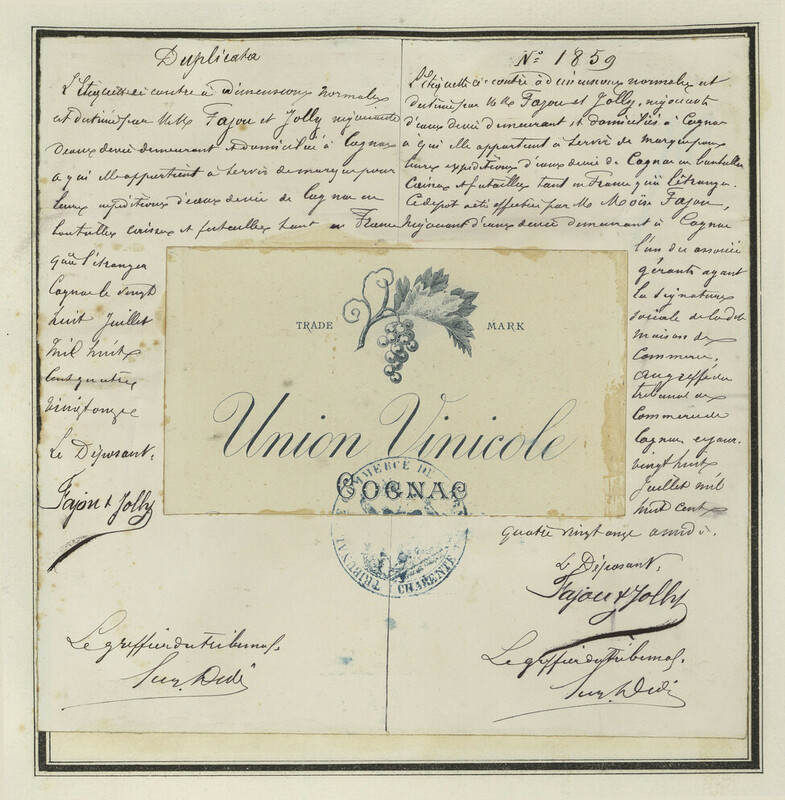 Duplicata
L'étiquette ci contre à dimensions normales
est destinée par MMrs Fajou et Jolly négociants
d'eaux devie demeurant et domiciliés à Cognac
a qui elle appartient à servir de marque pour
leurs expéditions d'eaux devie de Cognac en
bouteilles caisses et futailles tant en France
qu'à l'étranger
Cognac le vingt
huit Juillet
mil huit
cent quatre
vingt onze
Le Déposant,
Fajou & Jolly
Le greffier du tribunal
No 1859
L'étiquette ci-contre à dimensions normales est
destinée par MMrs Fajou et Jolly, négociants
d'eaux devie demeurant et domiciliés à Cognac
a qui elle appartient à servir de marque pour
leurs expéditions d'eaux devie de Cognac en bouteilles
Caisses et futailles tant en France qu'à l'étranger.
Ce dépot a été effectué par Mr Moïse Fajou,
Négociant d'eaux devie demeurant à Cognac
l'un des associés
gérants ayant
la signature
sociale de la dite
maison de
Commerce,
au greffe du
tribunal de
Commerce de
Cognac ce jour.
vingt huit
Juillet mil
huit cent
quatre vingt onze
Le Déposant,
Fajou & Jolly
Le greffier du tribunal.
TRADE MARK
Union Vinicole
COGNAC
TRIBUNAL DE COMMERCE DE
CHARENTE